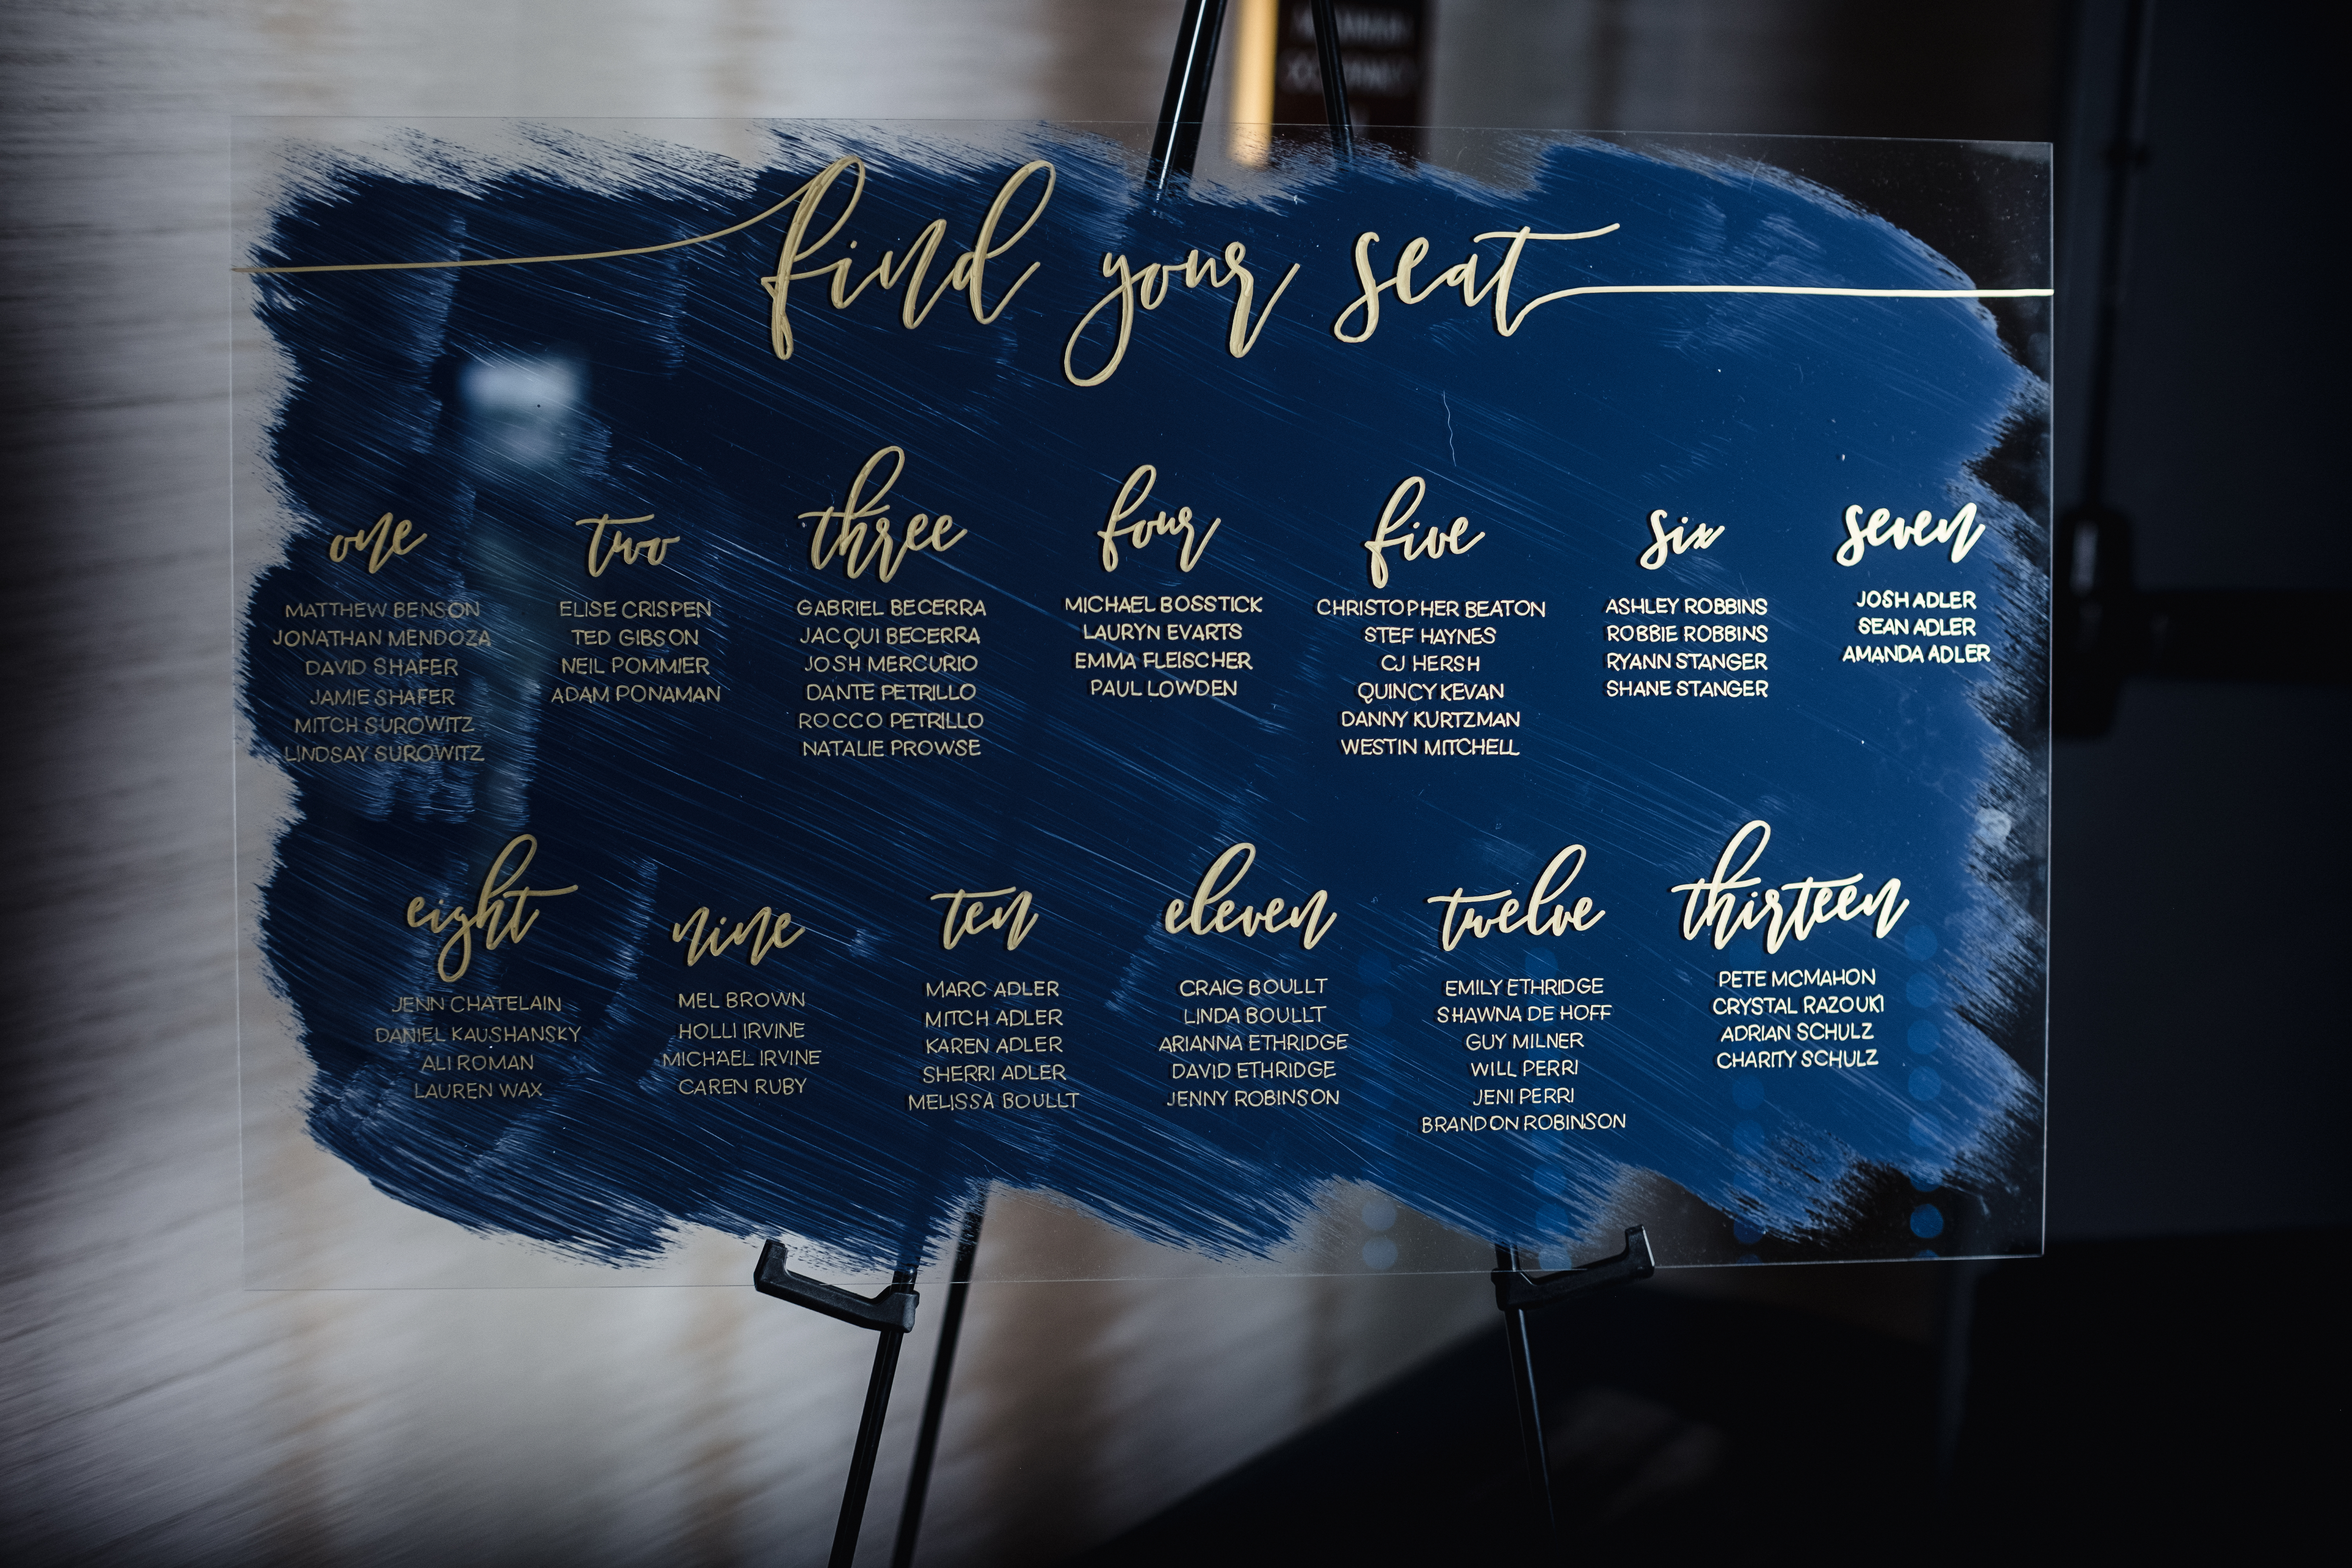 find your seat
one
MATTHEW BENSON
JONATHAN MENDOZA
DAVID SHAFER
JAMIE SHAFER
MITCH SUROWITZ
LINDSAY SUROWITZ
two
ELISE CRISPEN
TED GIBSON
NEIL POMMIER
ADAM PONAMAN
three
GABRIEL BECERRA
JACQUI BECERRA
JOSH MERCURIO
DANTE PETRILLO
ROCCO PETRILLO
NATALIE PROWSE
four
MICHAEL BOSSTICK
LAURYN EVARTS
EMMA FLEISCHER
PAUL LOWDEN
five
CHRISTOPHER BEATON
STEF HAYNES
CJ HERSH
QUINCY KEVAN
DANNY KURTZMAN
WESTIN MITCHELL
six
ASHLEY ROBBINS
ROBBIE ROBBINS
RYANN STANGER
SHANE STANGER
seven
JOSH ADLER
SEAN ADLER
AMANDA ADLER
eight
JENN CHATELAIN
DANIEL KAUSHANSKY
ALI ROMAN
LAUREN WAX
nine
MEL BROWN
HOLLI IRVINE
MICHAEL IRVINE
CAREN RUBY
ten
MARC ADLER
MITCH ADLER
KAREN ADLER
SHERRI ADLER
MELISSA BOULLT
eleven
CRAIG BOULLT
LINDA BOULLT
ARIANNA ETHRIDGE
DAVID ETHRIDGE
JENNY ROBINSON
twelve
EMILY ETHRIDGE
SHAWNA DE HOFF
GUY MILNER
WILL PERRI
JENI PERRI
BRANDON ROBINSON
thirteen
PETE MCMAHON
CRYSTAL RAZOUKI
ADRIAN SCHULZ
CHARITY SCHULZ